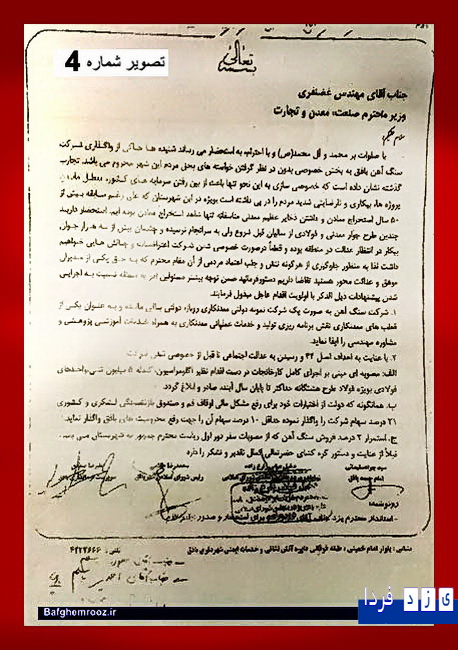 تصویر شماره 4
بسمه تعالی
جناب آقای مهندس غضنفری
وزیر محترم صنعت، معدن و تجارت
سلام علیکم
با صلوات بر محمد و آل محمد(ص) و با احترام، به استحضار می رساند شنیده ها حاکی از واگذاری شرکت
سنگ آهن بافق به بخش خصوصی بدون در نظر گرفتن خواسته های بحق مردم این شهر محروم می باشد. تجارب
گذشته نشان داده است که خصوصی سازی به این نحو تنها باعث از بین رفتن سرمایه های کشور، معطل ماندن
پروژه ها، بیکاری و نارضایتی شدید مردم را در پی داشته است بویژه در این شهرستان که علی رغم سابقه بیش از
۵۰ سال استخراج معادن و داشتن ذخایر عظیم معدنی متاسفانه تنها شاهد استخراج معادن بوده ایم. استحضار دارید
چندین طرح جوار معدنی و فولادی از سالیان قبل شروع ولی به سرانجام نرسیده و چشمان بیش از سه هزار جوان
بیکار در انتظار عدالت در منطقه بوده و قطعاً درصورت خصوصی شدن شرکت اعتراضات و چالش هایی خواهیم
داشت لذا به منظور جلوگیری از هرگونه تنش و جلب اعتماد مردمی از آن مقام محترم که به حق یکی از مدیران
موفق و عدالت محور هستید تقاضا داریم دستور فرمائید ضمن توجه بیشتر مسئولین امر به منطقه نسبت به اجرایی
شدن پیشنهادات ذیل الذکر با اولویت اقدام عاجل مبذول فرمایند.
۱. شرکت سنگ آهن به صورت یک شرکت نمونه دولتی معدنکاری روباز دولتی باقی مانده و به عنوان یکی از
قطب های معدنکاری نقش برنامه ریزی تولید و خدمات عملیاتی معدنکاری به همراه خدمات آموزشی پژوهشی و
مشاوره مهندسی را ایفا نماید.
۲. با عنایت به اهداف اصل ۴۴ و رسیدن به عدالت اجتماعی تا قبل از خصوصی شدن شرکت
الف: مصوبه ای مبنی بر اجرای کامل کارخانجات در دست اقدام نظیر آگلومراسیون، کنسانتره ۵ میلیون تنی، واحدهای
فولادی بویژه فولاد طرح هشتگانه حداکثر تا پایان سال آینده صادر و ابلاغ گردد.
ب: همانگونه که دولت از اختیارات خود برای رفع مشکل مالی اوقاف قم و صندوق بازنشستگی لشکری و کشوری
۲۱ درصد سهام شرکت را واگذار نموده حداقل ۱۰ درصد سهام آن را جهت رفع محرومیت های بافق واگذار نماید.
ج: استمرار ۲ درصد فروش سنگ آهن که از مصوبات سفر دور اول ریاست محترم جمهور به شهرستان می باشد.
قبلاً از عنایت و دستور گره گشای حضرتعالی کمال تقدیر و تشکر را دارد
امام جمعه بافق
رونوشت:
- استاندار محترم یزد جناب آقای برای استحضار و صدور
نشانی: بلوار امام خمینی، طبقه فوقانی دایره آتش نشانی و خدمات ایمنی شهرداری بافق
تلفن: ۴۲۲۲۶۶۶
Bafghemrooz.ir
یزد فردا